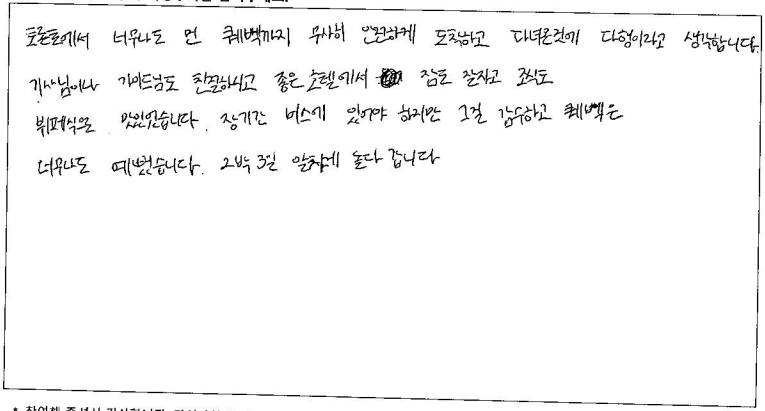 토론토에서 너무나도 먼 퀘백까지 무사히 안전하게 도착하고 다녀온것에 다행이라고 생각합니다.
기사님이나 가이드님도 친절하시고 좋은 호텔에서 잠도 잘자고 조식도
뷔페식으로 맛있었습니다. 장기간 버스에 있어야 하지만 그걸 감수하고 퀘백은
너무나도 예뻤습니다. 2박 3일 알차게 놀다 갑니다